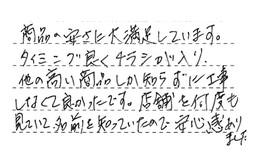 商品の安さに大満足しています。
タイミング良くチラシが入り、
他の高い商品しか知らずに工事
しなくて良かったです。店舗を何度も
見ていて名前を知っていたので安心感あり
ました